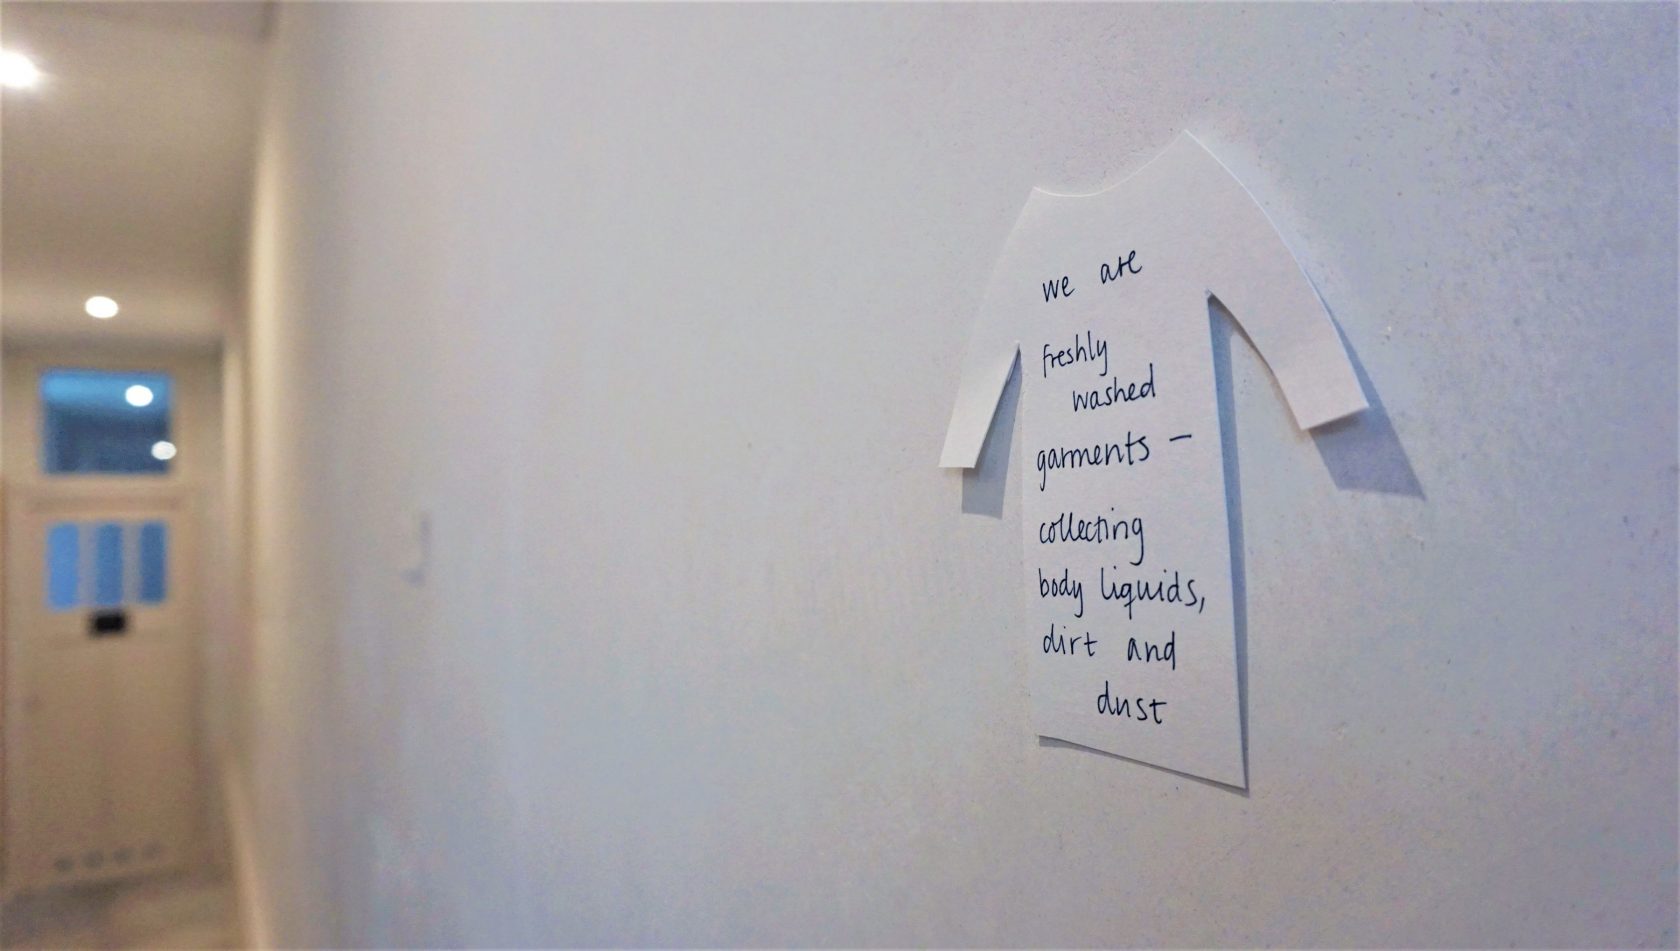 we are
freshly
washed
garments –
collecting
body liquids,
dirt and
dust